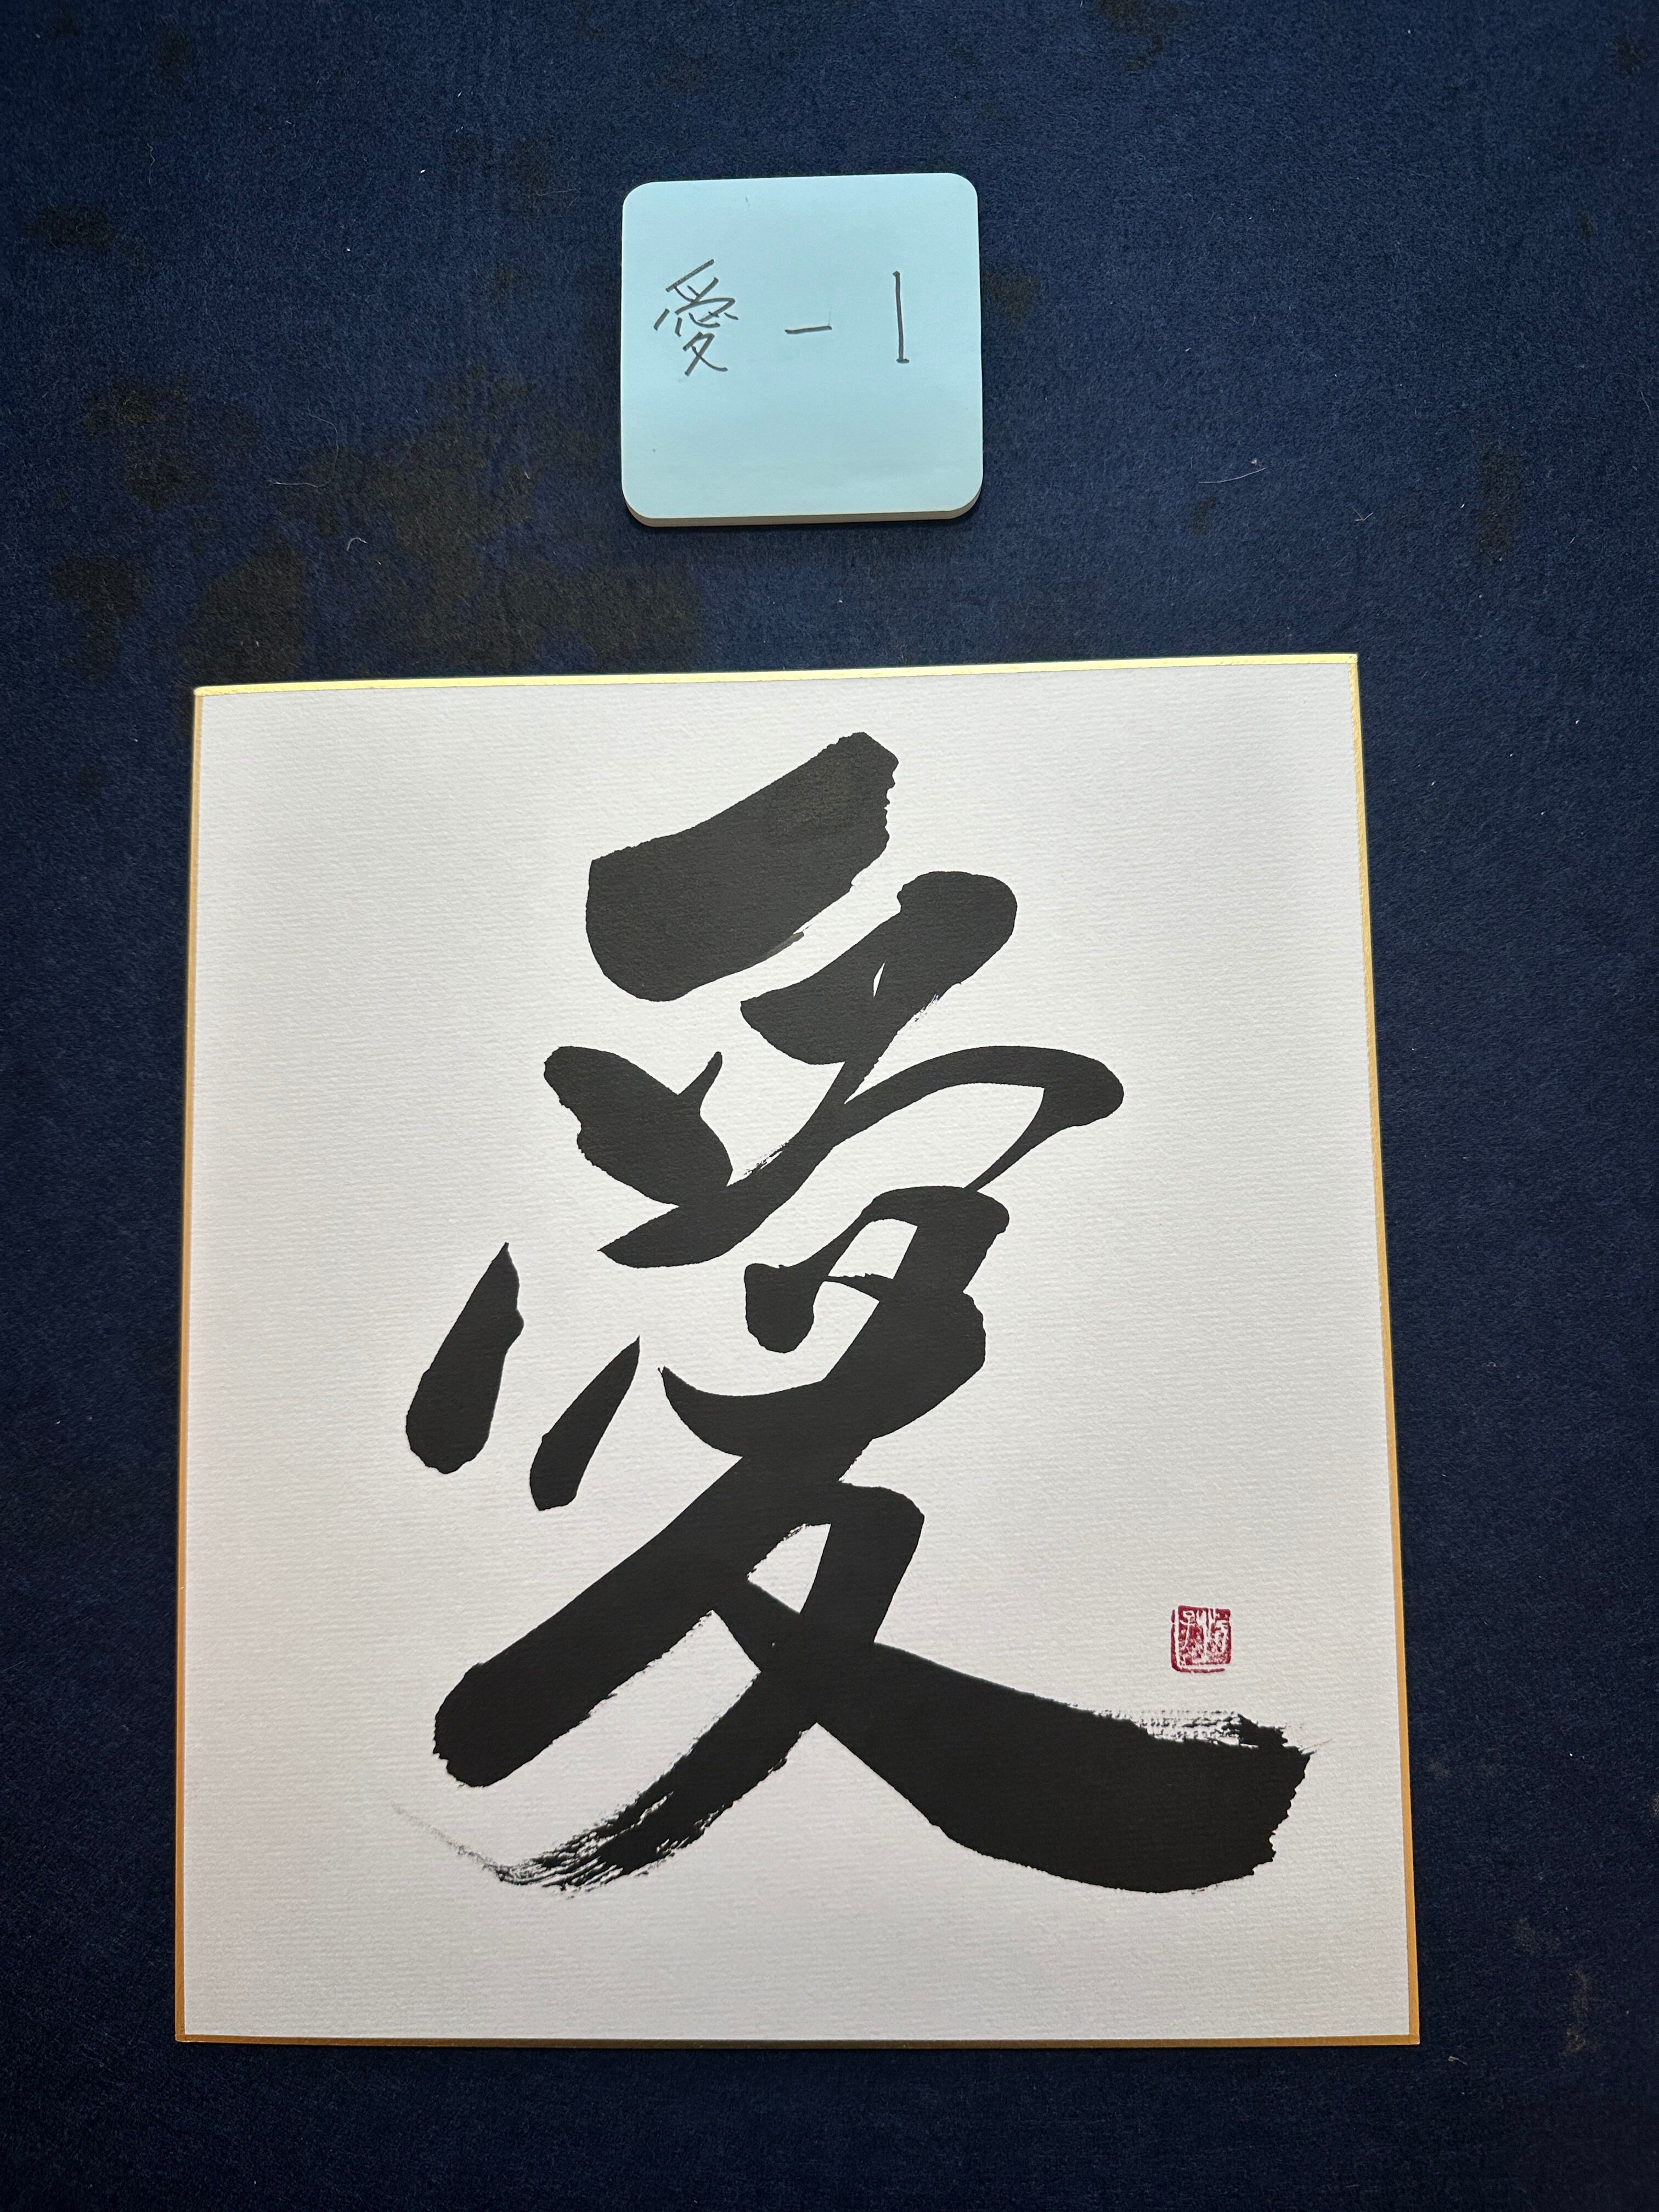 愛-1
愛